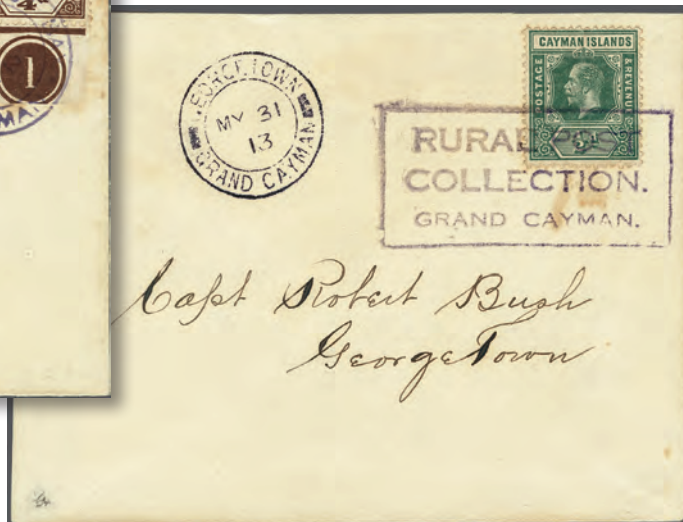 4d
1
MAN
GEORGETOWN
MY 31
13
GRAND CAYMAN
CAYMAN ISLANDS
POSTAGE
& REVENUE
RURAL POST
COLLECTION.
GRAND CAYMAN.
Capt Robert Bush
GeorgeTown